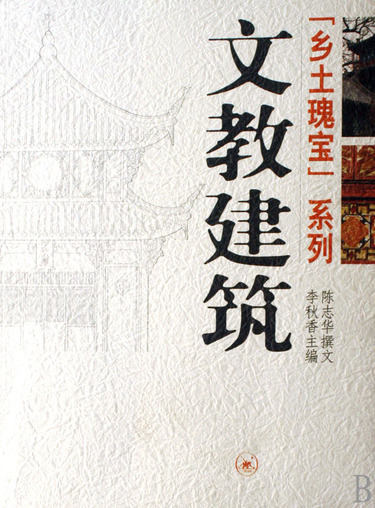 「乡土瑰宝」系列
文教建筑
陈志华撰文
李秋香主编
B